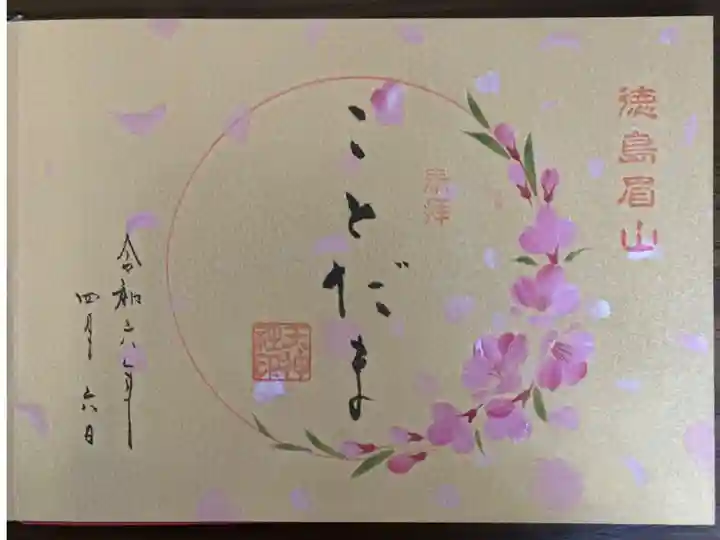 徳島眉山
奉拝
ことだま
令和六年
四月六日